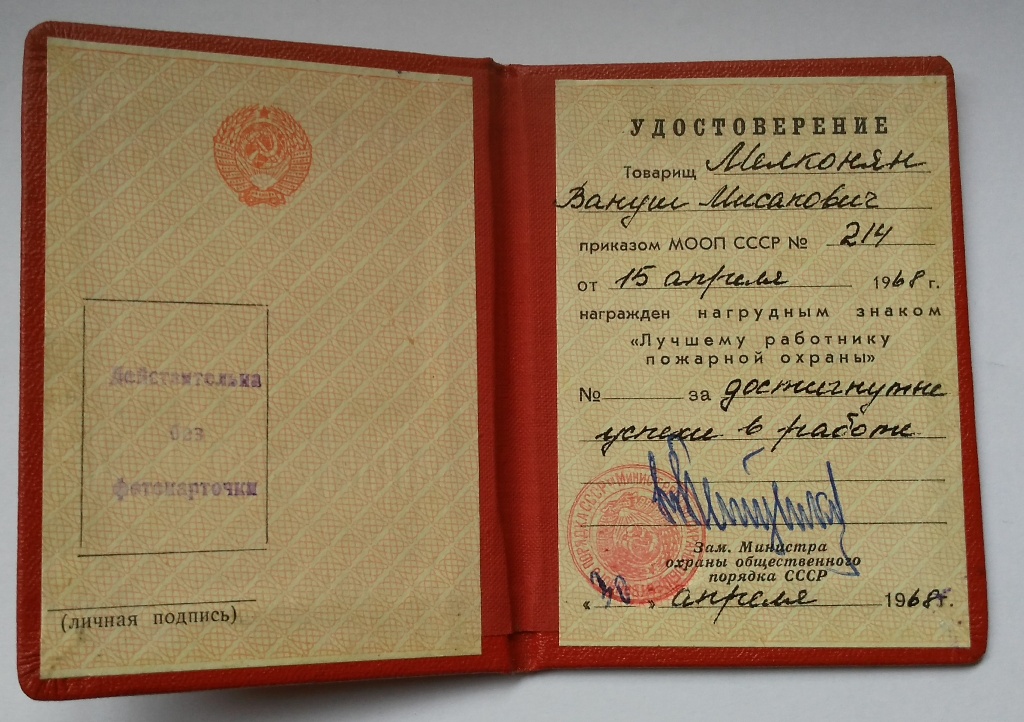 Действительна
без
фотокарточки
(личная подпись)
УДОСТОВЕРЕНИЕ
Товарищ Мелконян
Вануш Мисакович
приказом МООП СССР № 214
от 15 апреля 1968 г.
награжден нагрудным знаком
«Лучшему работнику
пожарной охраны»
№ за достигнутые
успехи в работе
Зам. Министра
охраны общественного
порядка СССР
«30» апреля 1968 г.